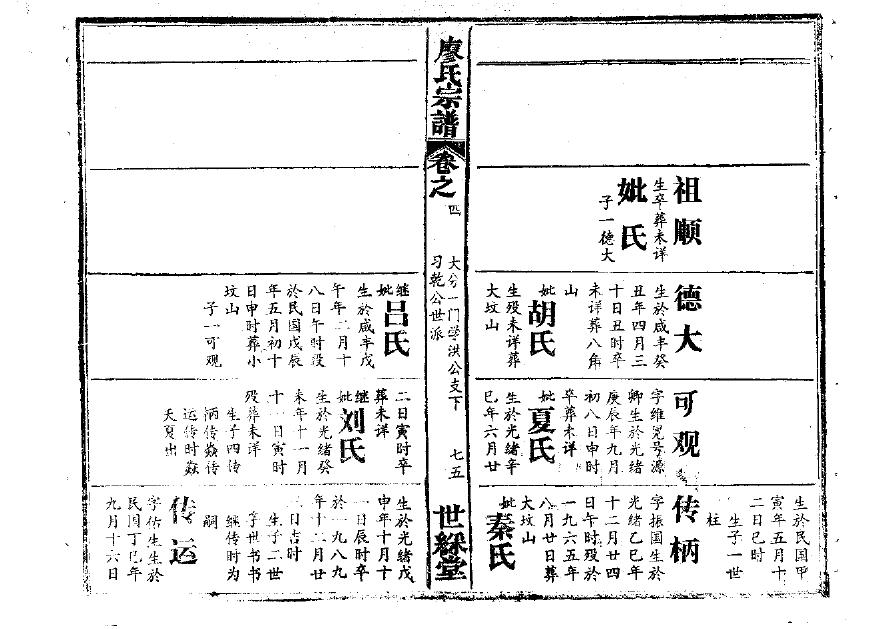 廖氏宗譜
卷之四
大兮一门学洪公支下
习乾公世派
七五
世綵堂
祖顺
生卒葬未详
妣氏
子一德大
德大
生於咸丰癸
丑年四月三
十日丑时卒
未详葬八角
山
妣胡氏
生殁未详葬
大坟山
继妣吕氏
生於咸丰戊
午年二月十
八日午时殁
於民国戊辰
年五月初十
日申时葬小
坟山
子一可观
可观
字维冕号源
卿生於光绪
庚辰年九月
初八日申时
卒葬未详
妣夏氏
生於光绪辛
巳年六月廿
二日寅时卒
葬未详
继妣刘氏
生於光绪癸
未年十一月
十一日寅时
殁葬未详
生子四传
柄传焱传
运传时焱
天夏出
生於民国甲
寅年五月十
二日巳时
生子一世
柱
传柄
字振国生於
光绪乙巳年
十二月廿四
日午时殁於
一九六五年
八月廿日葬
大坟山
妣秦氏
生於光绪戊
申年十月十
一日辰时卒
於一九八九
年十二月廿
三日吉时
生子二世
字世书书
继传时为
嗣
传运
字佑生生於
民国丁巳年
九月十六日